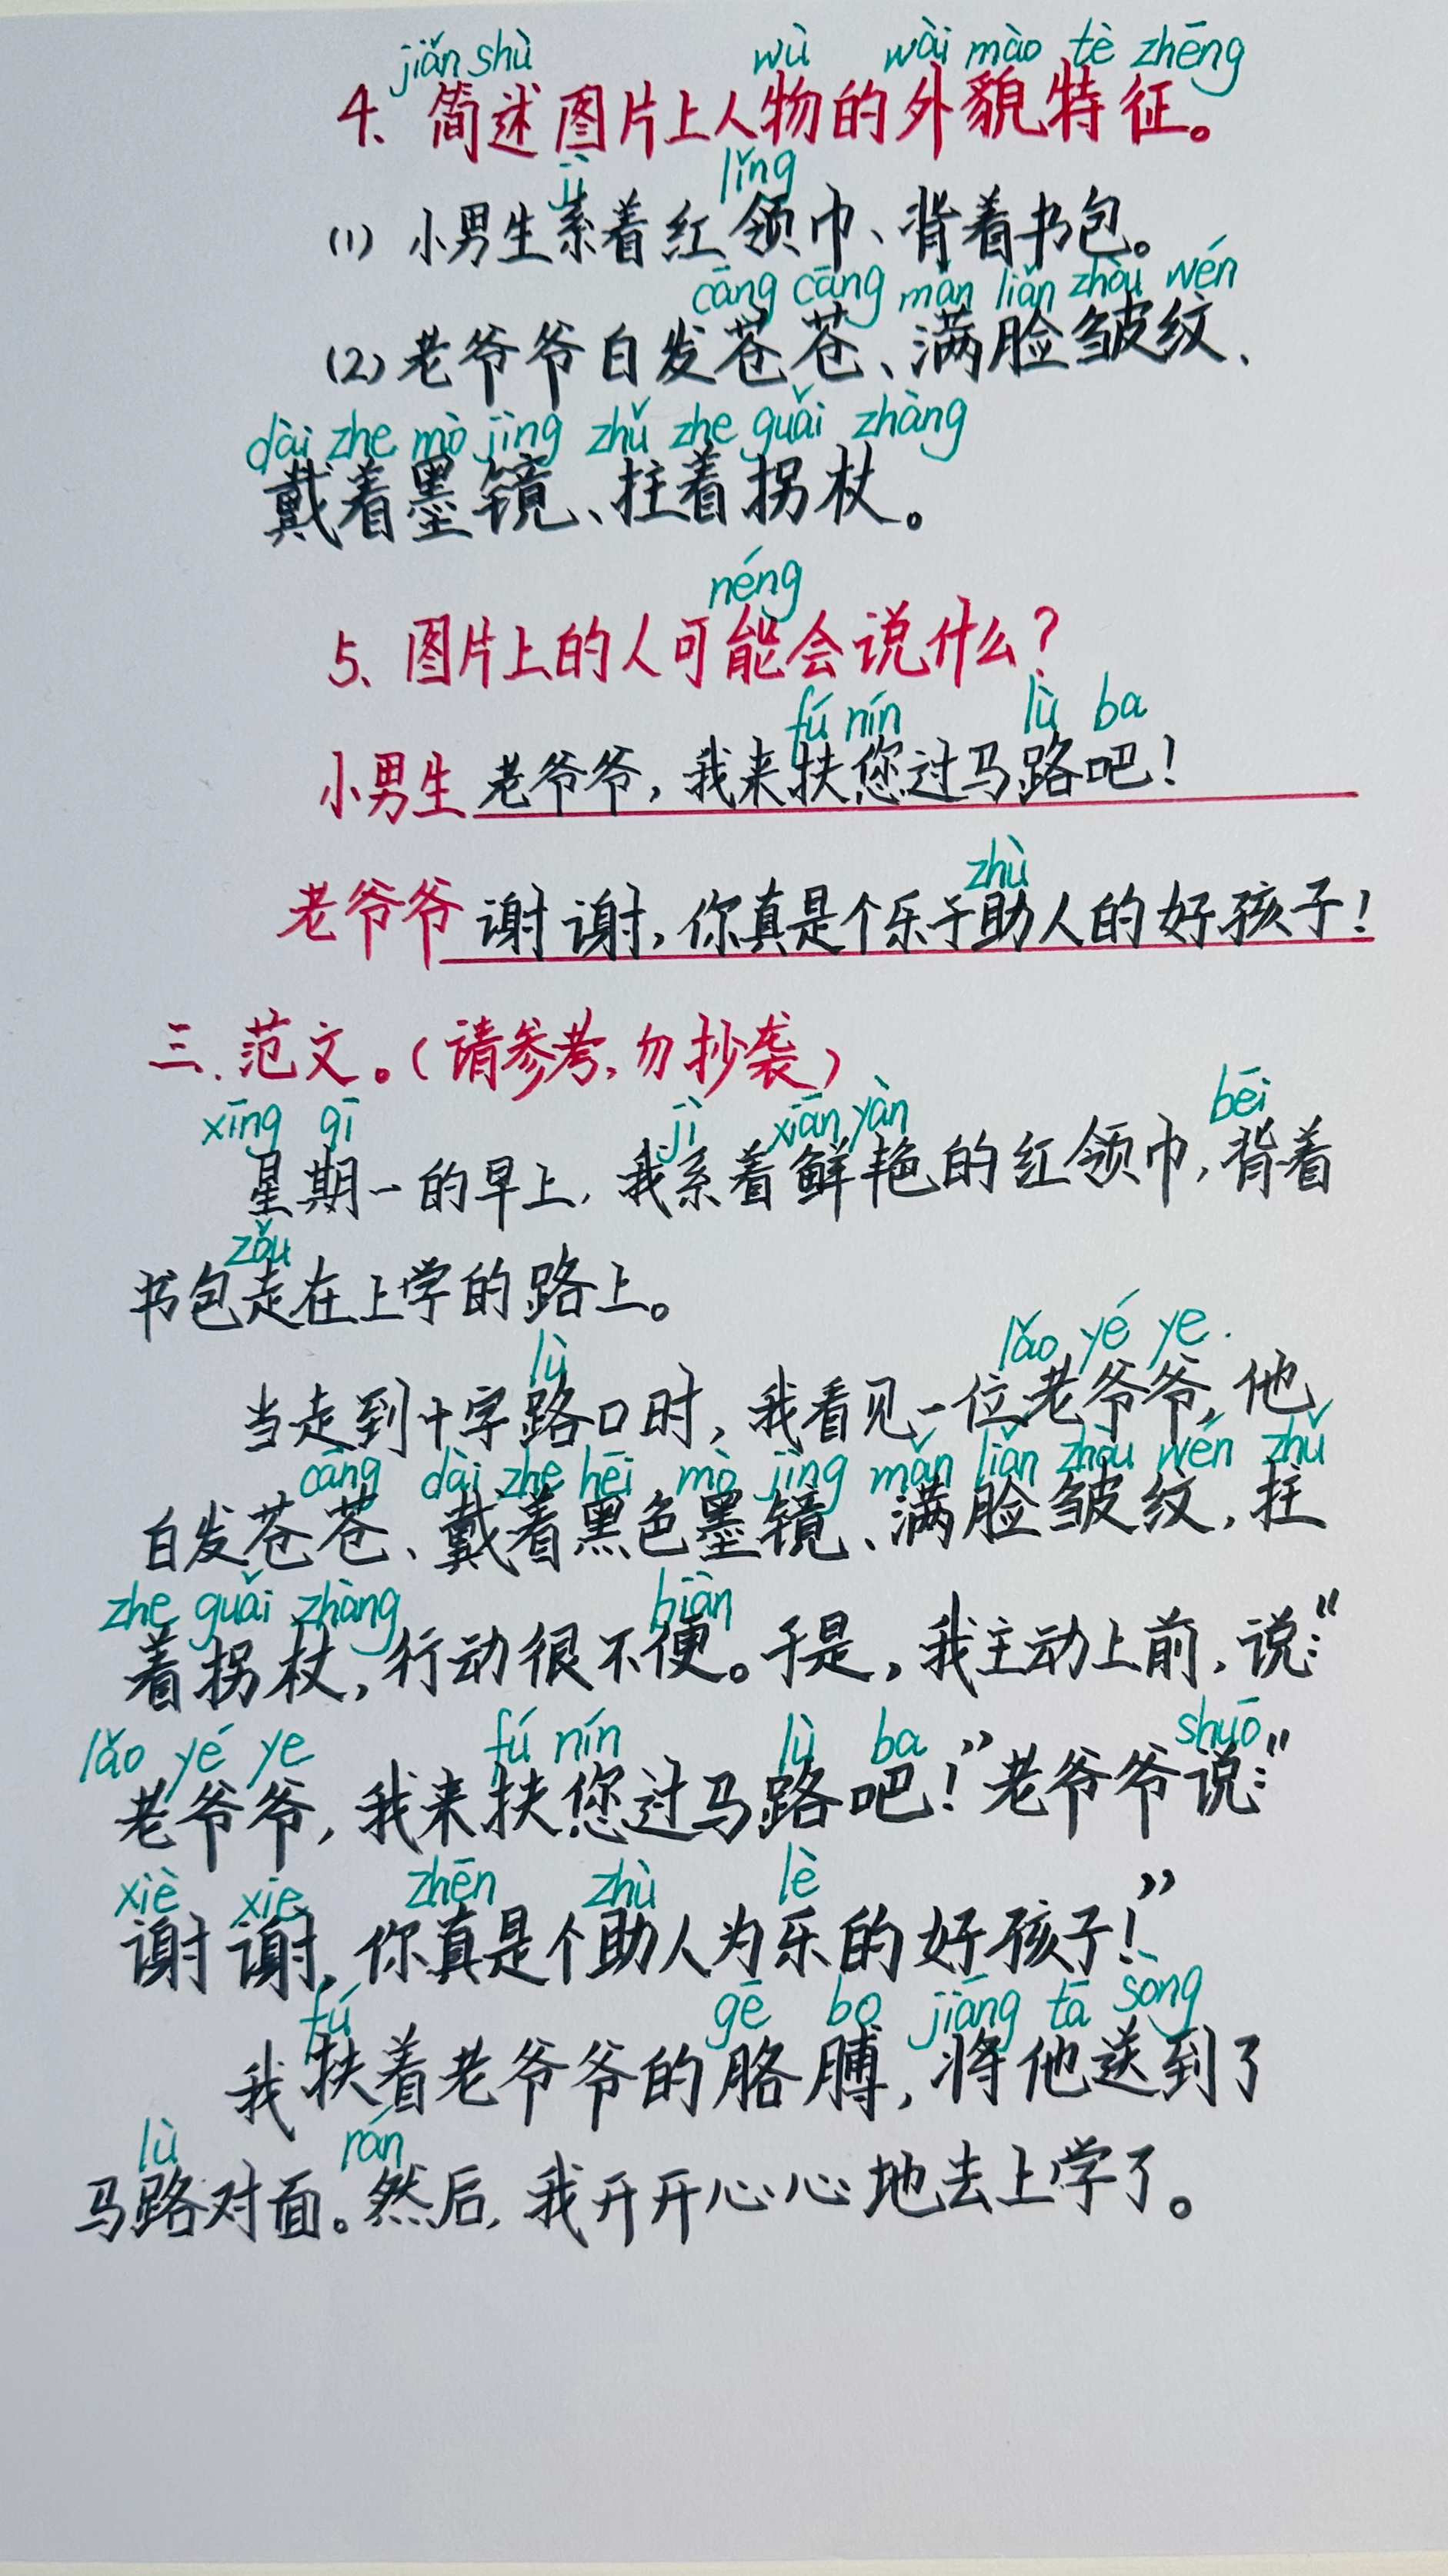 jiǎn shù wù wài mào tè zhēng
4、简述图片上人物的外貌特征。
jì lǐng
(1) 小男生系着红领巾、背着书包。
cāng cāng mǎn liǎn zhòu wén
(2) 老爷爷白发苍苍、满脸皱纹、
dài zhe mò jìng zhǔ zhe guǎi zhàng
戴着墨镜、拄着拐杖。
néng
5、图片上的人可能会说什么?
fú nín lù ba
小男生 老爷爷,我来扶您过马路吧!
zhù
老爷爷 谢谢,你真是个乐于助人的好孩子!
三、范文。(请参考,勿抄袭)
xīng qī jì xiān yàn bēi
星期一的早上,我系着鲜艳的红领巾,背着
zǒu
书包走在上学的路上。
lù lǎo yé ye
当走到十字路口时,我看见一位老爷爷,他
cāng dài zhe hēi mò jìng mǎn liǎn zhòu wén zhǔ
白发苍苍、戴着黑色墨镜、满脸皱纹,拄
zhe guǎi zhàng biàn
着拐杖,行动很不便。于是,我主动上前,说:“
lǎo yé ye fú nín lù ba shuō
老爷爷,我来扶您过马路吧!”老爷爷说:“
xiè xie zhēn zhù lè
谢谢,你真是个助人为乐的好孩子!”
fú gē bo jiāng tā sòng
我扶着老爷爷的胳膊,将他送到了
lù rán
马路对面。然后,我开开心心地去上学了。